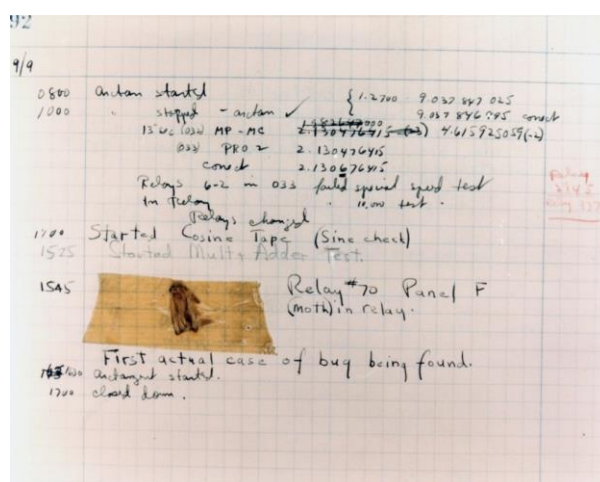 92
9/9
0800 Antan started
1000 " stopped - antan ✓ { 1.2700 9.037 847 025
9.037 846 995 conect
13"uc (032) MP - MC 2.130476415 (-3) 4.615925059(-2)
(033) PRO 2 2.130476415
conect 2.130676415
Relays 6-2 in 033 failed special speed test
in Relay " 10,000 test .
Relays changed
1700 Started Cosine Tape (Sine check)
1525 Started Mult + Adder Test.
1545 Relay #70 Panel F
(moth) in relay.
First actual case of bug being found.
1630 antangent started.
1700 closed down .